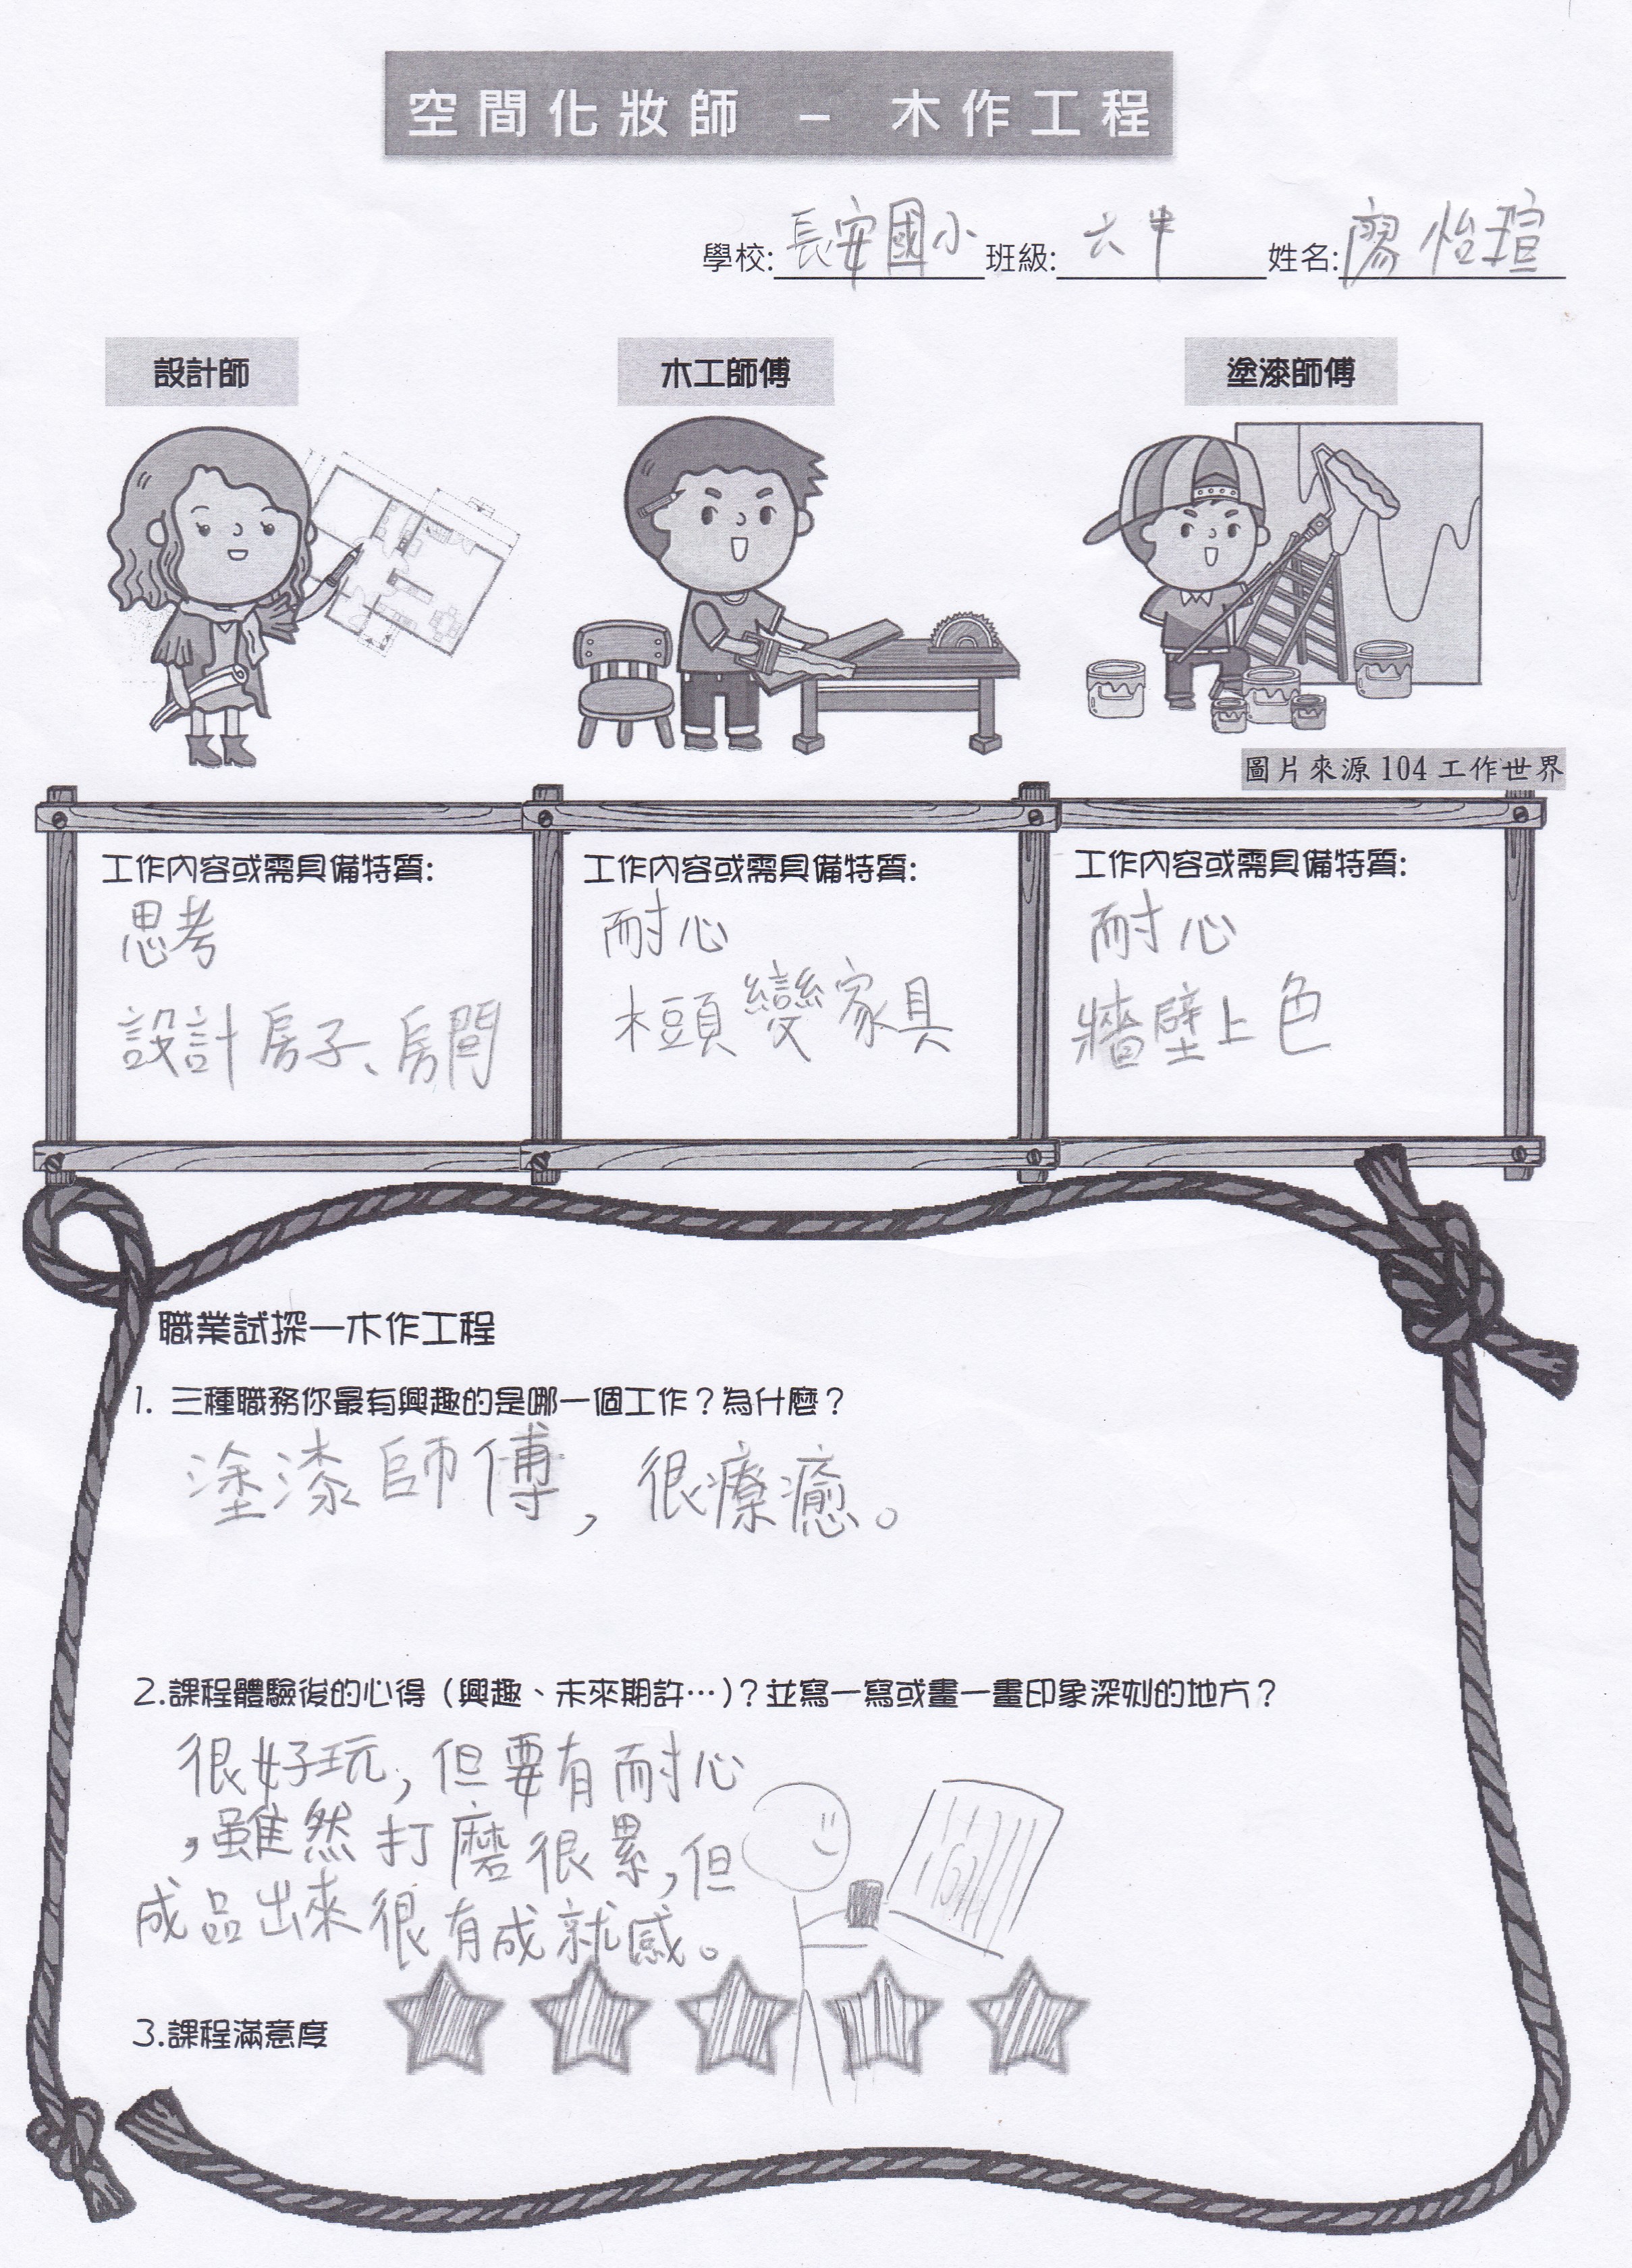 空間化妝師 – 木作工程
學校:長安國小 班級:六甲 姓名:廖怡瑄
設計師 木工師傅 塗漆師傅
圖片來源 104 工作世界
工作內容或需具備特質:
思考
設計房子、房間
工作內容或需具備特質:
耐心
木頭變家具
工作內容或需具備特質:
耐心
牆壁上色
職業試探—木作工程
1. 三種職務你最有興趣的是哪一個工作？為什麼？
塗漆師傅，很療癒。
2.課程體驗後的心得（興趣、未來期許…）？並寫一寫或畫一畫印象深刻的地方？
很好玩，但要有耐心
，雖然打磨很累，但
成品出來很有成就感。
3.課程滿意度